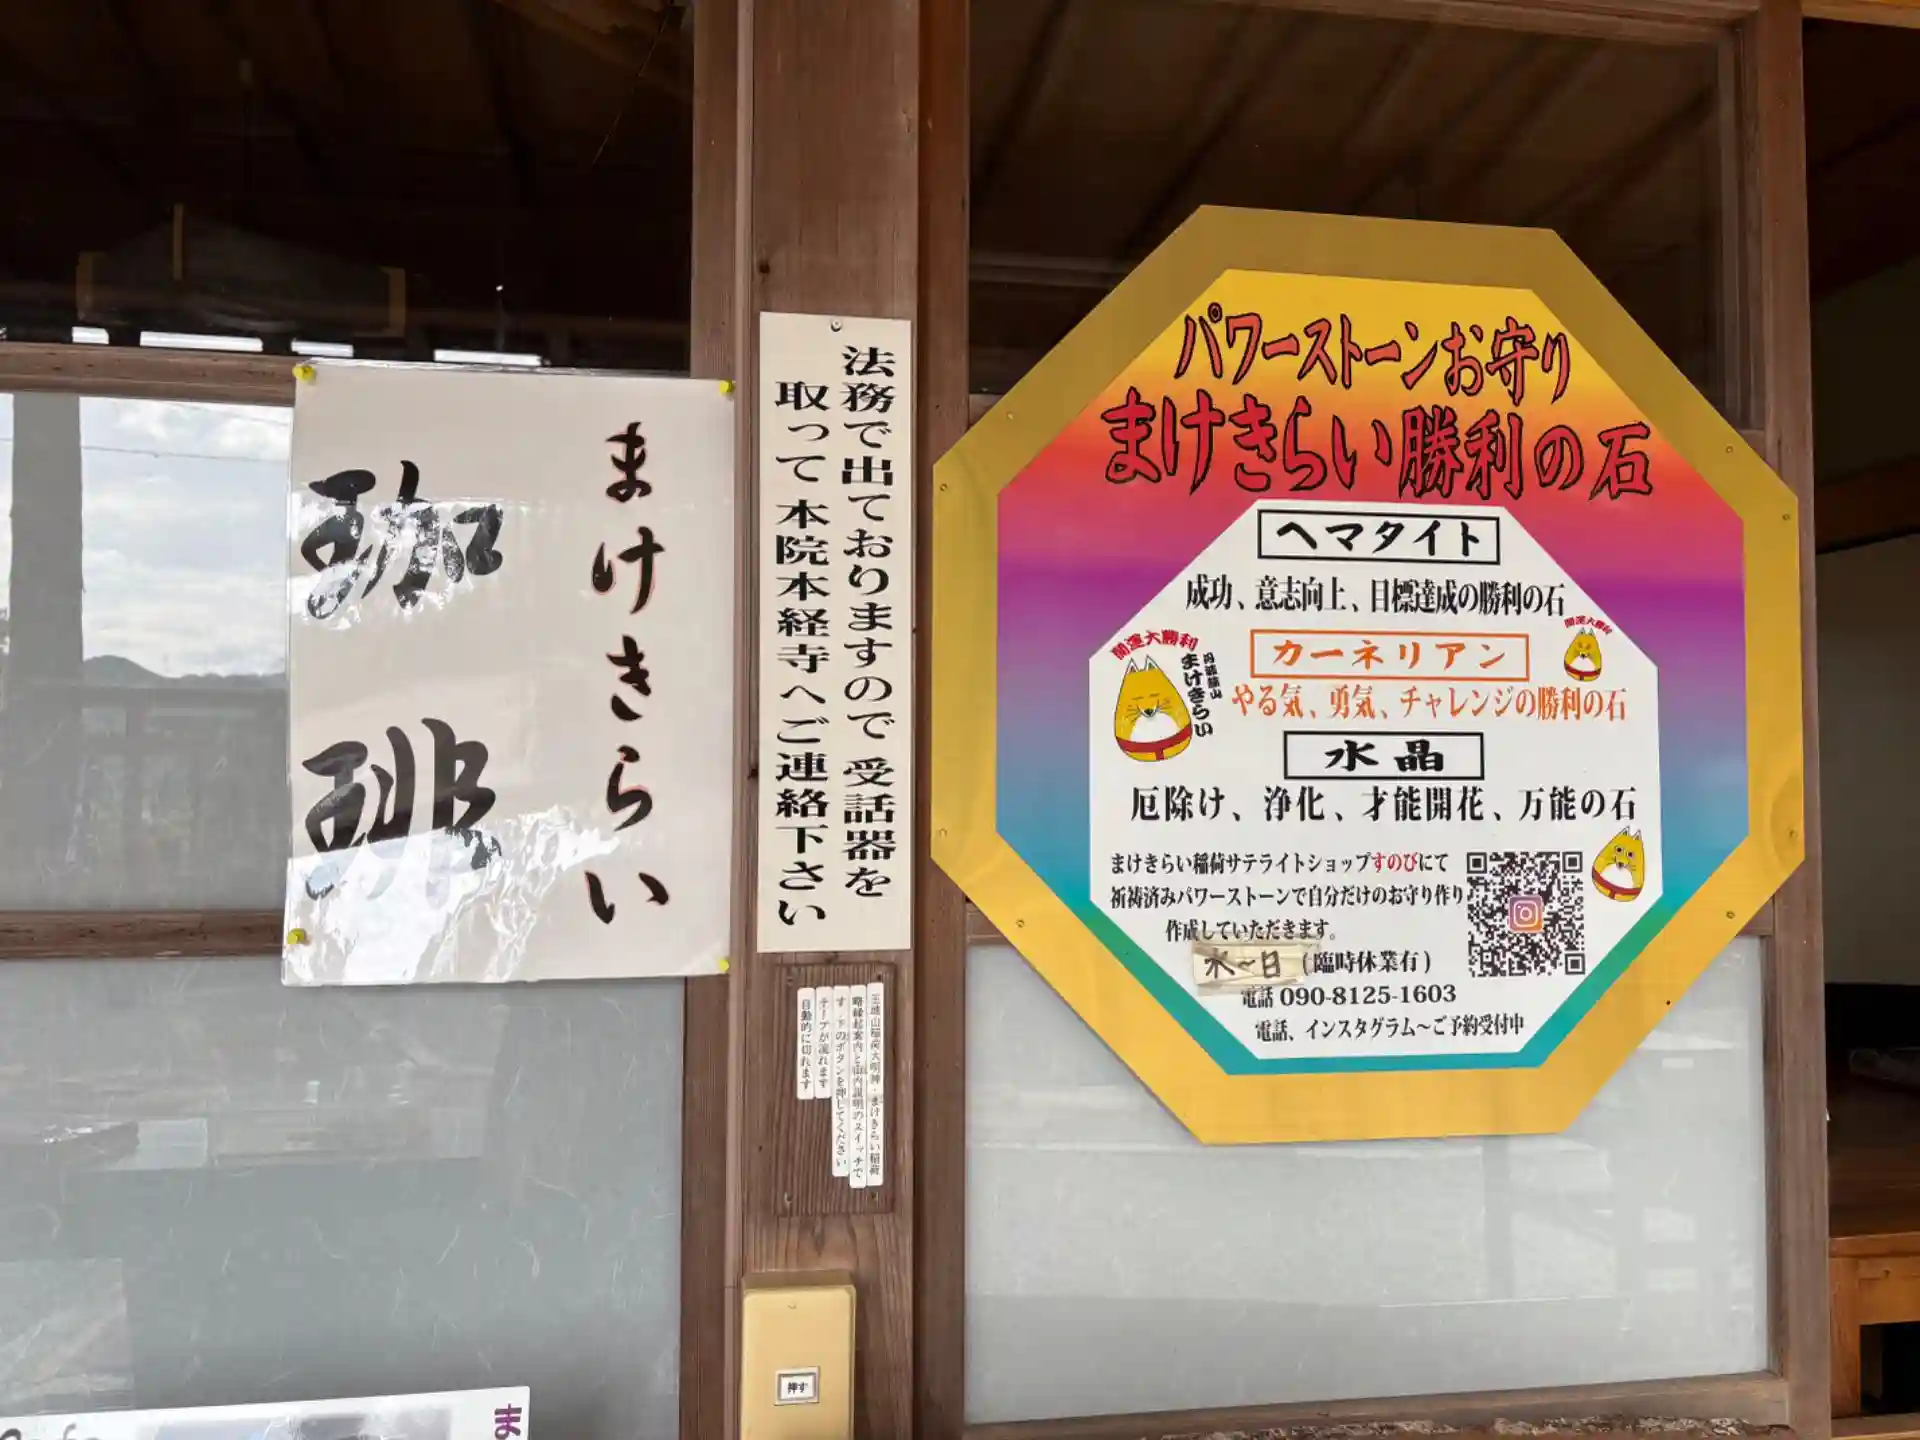 まけきらい
珈琲
法務で出ておりますので 受話器を
取って 本院本経寺へご連絡下さい
王地山稲荷大明神・まけきらい稲荷
略縁起案内と山内説明のスイッチで
す 下のボタンを押してください
テープが流れます
自動的に切れます
押す
ま
パワーストーンお守り
まけきらい勝利の石
ヘマタイト
成功、意志向上、目標達成の勝利の石
カーネリアン
やる気、勇気、チャレンジの勝利の石
水晶
厄除け、浄化、才能開花、万能の石
開運大勝利
丹波篠山
まけきらい
開運大勝利
まけきらい稲荷サテライトショップすのびにて
祈祷済みパワーストーンで自分だけのお守り作り
作成していただきます。
水～日 (臨時休業有)
電話 090-8125-1603
電話、インスタグラム～ご予約受付中